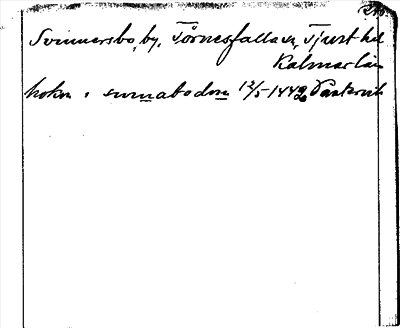 Svinnersbo, by. Törnesfalla sn, Tjust hd
Kalmar län
hokon i swnnabodom 12/5 1442 Västervik